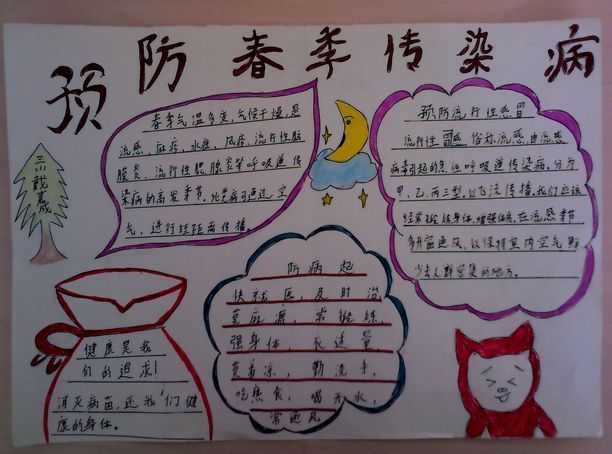 预防春季传染病
春季气温多变,气候干燥,是
流感、麻疹、水痘、风疹、流行性脑
膜炎、流行性腮腺炎等呼吸道传
染病的高发季节,此类病可通过空
气,进行短距离传播。
预防流行性感冒
流行性感冒俗称流感,由流感
病毒引起的急性呼吸道传染病,分为
甲、乙、丙三型,以飞沫传播,我们应该
经常锻炼身体,增强体质,在流感季节
多开窗通风,以保持室内空气新
少去人群密集的地方。
防病起
快就医,及时治
莫麻源,常锻练
强身体,衣适量
莫着凉,勤洗手,
吃熟食,喝开水,
常通风
健康是我
们的追求!
消灭病苗,还我们健
康的身体。